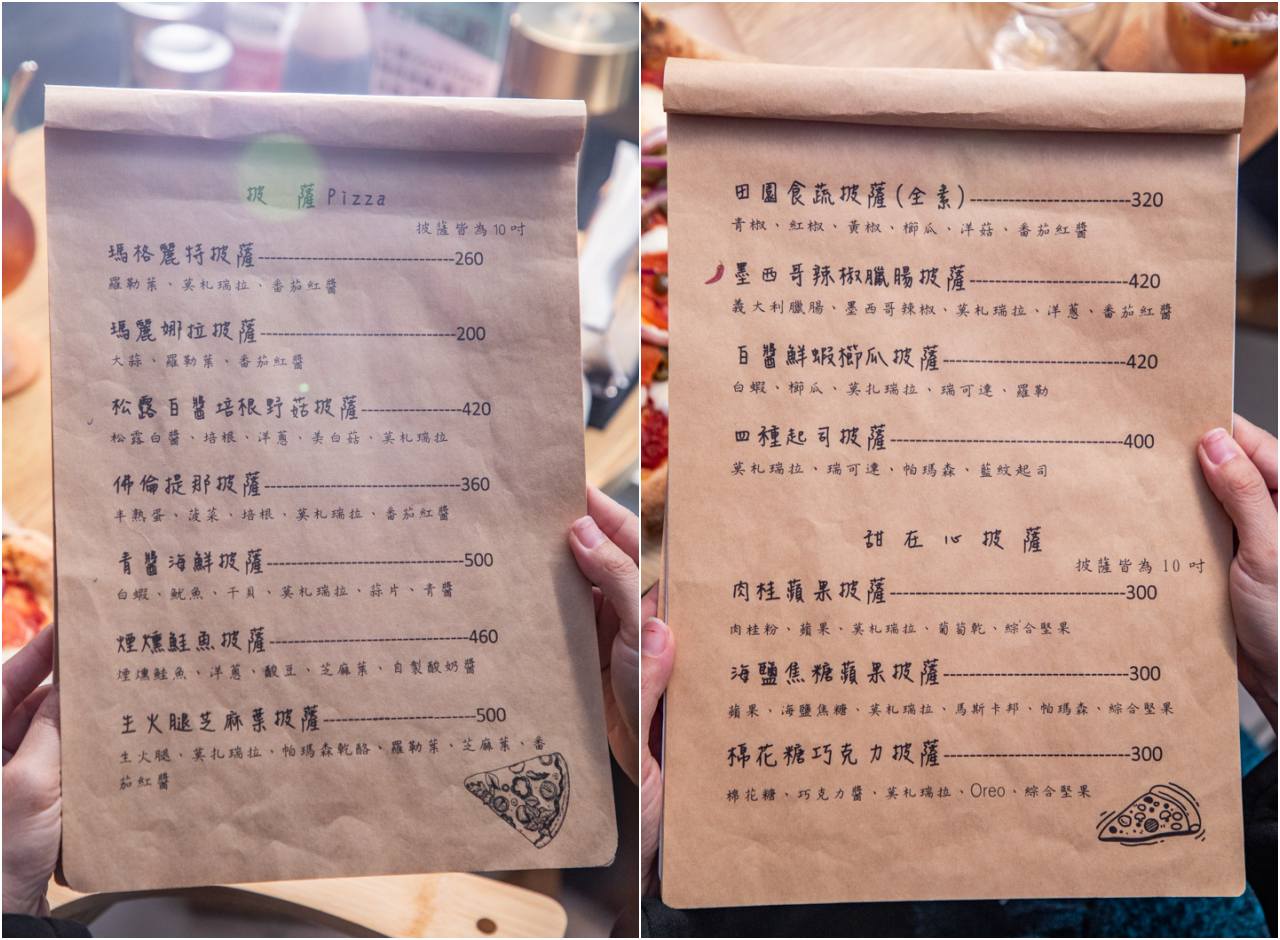 披薩Pizza
披薩皆為10吋
瑪格麗特披薩------260
羅勒葉、莫札瑞拉、番茄紅醬
瑪麗娜拉披薩------200
大蒜、羅勒葉、番茄紅醬
松露白醬培根野菇披薩------420
松露白醬、培根、洋蔥、美白菇、莫札瑞拉
佛倫提那披薩------360
半熟蛋、菠菜、培根、莫札瑞拉、番茄紅醬
青醬海鮮披薩------500
白蝦、魷魚、干貝、莫札瑞拉、蒜片、青醬
煙燻鮭魚披薩------460
煙燻鮭魚、洋蔥、酸豆、芝麻葉、自製酸奶醬
生火腿芝麻葉披薩------500
生火腿、莫札瑞拉、帕瑪森乾酪、羅勒葉、芝麻葉、番
茄紅醬
田園食蔬披薩(全素)------320
青椒、紅椒、黃椒、櫛瓜、洋菇、番茄紅醬
墨西哥辣椒臘腸披薩------420
義大利臘腸、墨西哥辣椒、莫札瑞拉、洋蔥、番茄紅醬
白醬鮮蝦櫛瓜披薩------420
白蝦、櫛瓜、莫札瑞拉、瑞可達、羅勒
四種起司披薩------400
莫札瑞拉、瑞可達、帕瑪森、藍紋起司
甜在心披薩
披薩皆為10吋
肉桂蘋果披薩------300
肉桂粉、蘋果、莫札瑞拉、葡萄乾、綜合堅果
海鹽焦糖蘋果披薩------300
蘋果、海鹽焦糖、莫札瑞拉、馬斯卡邦、帕瑪森、綜合堅果
棉花糖巧克力披薩------300
棉花糖、巧克力醬、莫札瑞拉、Oreo、綜合堅果